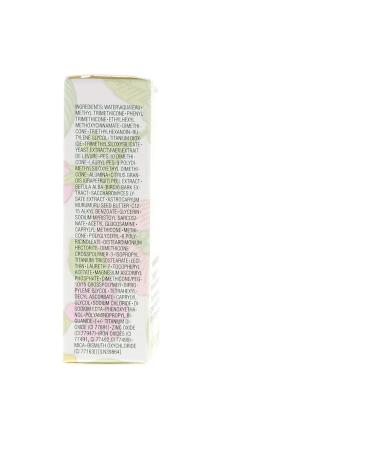 INGREDIENTS: WATER\AQUA\EAU•
METHYL TRIMETHICONE•PHENYL
TRIMETHICONE•ETHYLHEXYL
METHOXYCINNAMATE•DIMETHI-
CONE•TRIETHYLHEXANOIN•BU-
TYLENE GLYCOL•TITANIUM DIOX-
IDE•TRIMETHYLSILOXYSILICATE•
YEAST EXTRACT\FAEX\EXTRAIT
DE LEVURE•PEG-10 DIMETHI-
CONE•LAURYL PEG-9 POLYDI-
METHYLSILOXYETHYL DIMETHI-
CONE•ALUMINA•CITRUS GRAN-
DIS (GRAPEFRUIT) PEEL EXTRACT•
BETULA ALBA (BIRCH) BARK EX-
TRACT•SACCHAROMYCES LY-
SATE EXTRACT•ASTROCARYUM
MURUMURU SEED BUTTER•C12-
15 ALKYL BENZOATE•GLYCERIN•
SODIUM MYRISTOYL SARCOSI-
NATE•ACETYL GLUCOSAMINE•
CAPRYLYL METHICONE•METHI-
CONE•POLYGLYCERYL-6 POLY-
RICINOLEATE•DISTEARDIMONIUM
HECTORITE•DIMETHICONE
CROSSPOLYMER-3•ISOPROPYL
TITANIUM TRIISOSTEARATE•LECI-
THIN•LAURETH-7•TOCOPHERYL
ACETATE•MAGNESIUM ASCORBYL
PHOSPHATE•DIMETHICONE/PEG-
10/15 CROSSPOLYMER•DIPRO-
PYLENE GLYCOL•TETRAHEXYL-
DECYL ASCORBATE•CAPRYLYL
GLYCOL•SODIUM CHLORIDE•DI-
SODIUM EDTA•PHENOXYETHA-
NOL•POLYAMINOPROPYL BI-
GUANIDE•[+/- TITANIUM DI-
OXIDE (CI 77891)•ZINC OXIDE
(CI 77947)•IRON OXIDES (CI
77491, CI 77492, CI 77499)•
MICA•BISMUTH OXYCHLORIDE
(CI 77163)] [ILN39864]